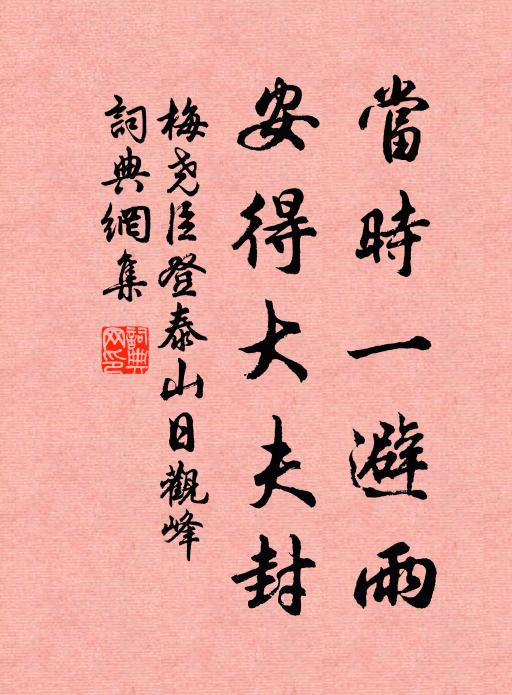 當時一避雨
安得大夫封
梅尧臣登泰山日觀峰
詞典網集
詞典網印